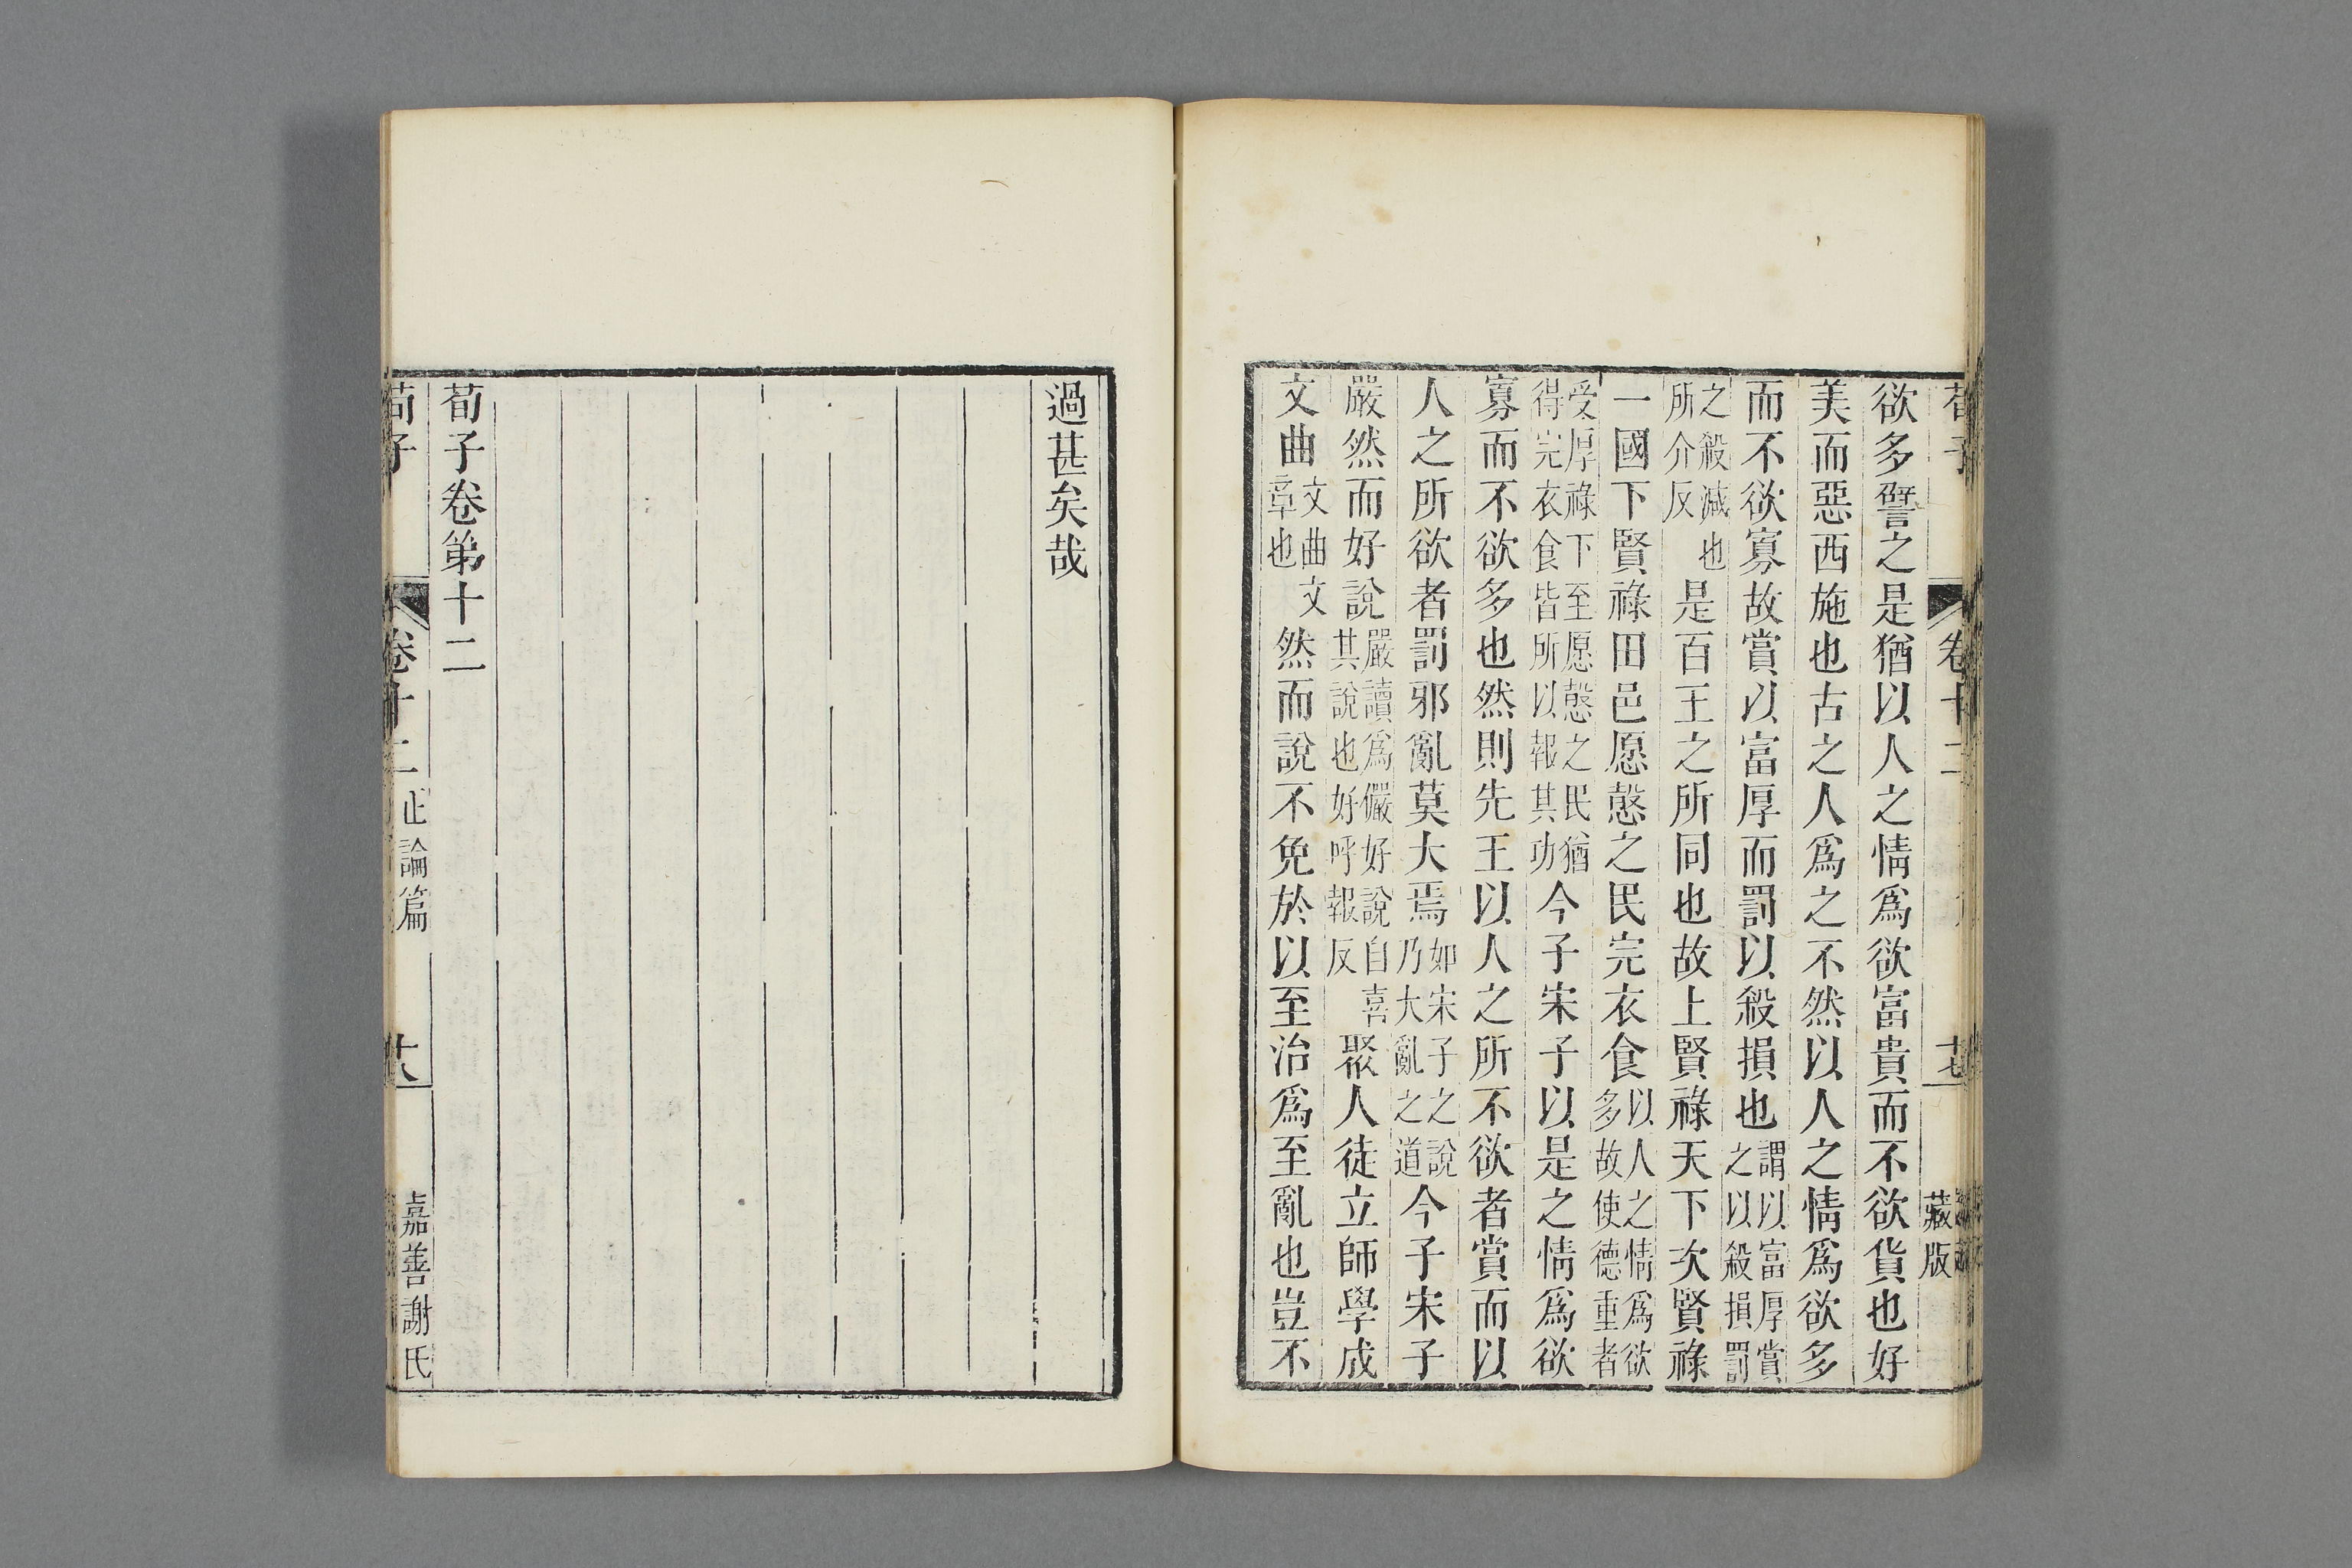 欲多譬之是猶以人之情爲欲富貴而不欲貨也好
美而惡西施也古之人爲之不然以人之情爲欲多
而不欲寡故賞以富厚而罰以殺損也謂以富厚賞之以殺損罰
之殺減也所介反是百王之所同也故上賢祿天下次賢祿
一國下賢祿田邑愿慤之民完衣食以人之情爲欲多故使德重者
受厚祿下至愿慤之民猶得完衣食皆所以報其功今子宋子以是之情爲欲
寡而不欲多也然則先王以人之所不欲者賞而以
人之所欲者罰邪亂莫大焉如宋子之說乃大亂之道今子宋子
嚴然而好說嚴讀爲儼好說自喜其說也好呼報反聚人徒立師學成
文曲文曲文章也然而說不免於以至治爲至亂也豈不
過甚矣哉
荀子卷第十二
荀子
卷十二
正論篇
十八
嘉善謝氏
荀子
卷十二
十七
藏版